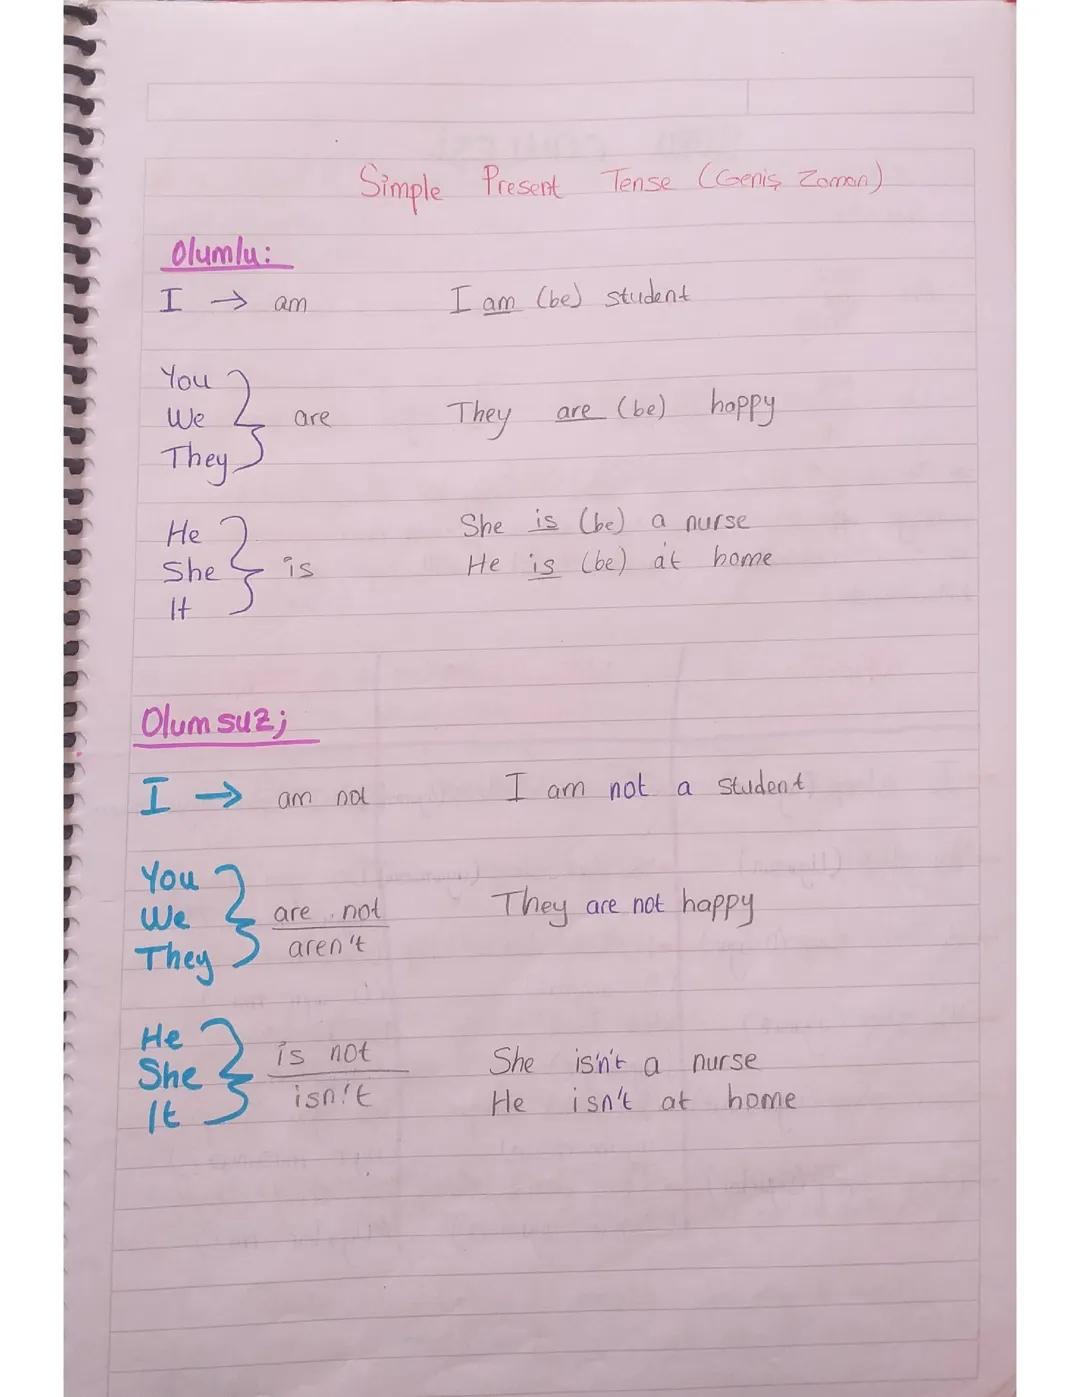 Simple Present Tense (Geniş Zaman)
Olumlu:
I → am I am (be) student
You
We are They are (be) happy
They
He She is (be) a nurse
She is He is (be) at home
It
Olumsuz;
I → am not I am not a student
You
We are not They are not happy
They aren't
He
She is not She isn't a nurse
It isn't He isn't at home